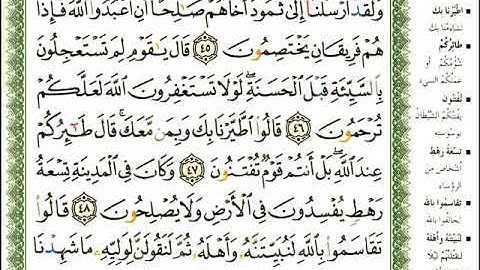 وَلَقَدْ أَرْسَلْنَا إِلَىٰ ثَمُودَ أَخَاهُمْ صَالِحًا أَنِ اعْبُدُوا اللَّهَ فَإِذَا
هُمْ فَرِيقَانِ يَخْتَصِمُونَ ٤٥ قَالَ يَا قَوْمِ لِمَ تَسْتَعْجِلُونَ
بِالسَّيِّئَةِ قَبْلَ الْحَسَنَةِ ۖ لَوْلَا تَسْتَغْفِرُونَ اللَّهَ لَعَلَّكُمْ
تُرْحَمُونَ ٤٦ قَالُوا اطَّيَّرْنَا بِكَ وَبِمَن مَّعَكَ ۚ قَالَ طَائِرُكُمْ
عِندَ اللَّهِ ۖ بَلْ أَنتُمْ قَوْمٌ تُفْتَنُونَ ٤٧ وَكَانَ فِي الْمَدِينَةِ تِسْعَةُ
رَهْطٍ يُفْسِدُونَ فِي الْأَرْضِ وَلَا يُصْلِحُونَ ٤٨ قَالُوا
تَقَاسَمُوا بِاللَّهِ لَنُبَيِّتَنَّهُ وَأَهْلَهُ ثُمَّ لَنَقُولَنَّ لِوَلِيِّهِ مَا شَهِدْنَا
اطَّيَّرْنَا بِكَ
تَشَاءَمْنَا بِكَ
طَائِرُكُمْ
شُؤْمُكُمْ أَوْ
عَمَلُكُمُ السَّيِّئُ
تُفْتَنُونَ
يَفْتِنُكُمُ الشَّيْطَانُ
بِوَسْوَسَتِهِ
تِسْعَةُ رَهْطٍ
أَشْخَاصٍ مِنَ
الرُّؤَسَاءِ
تَقَاسَمُوا بِاللَّهِ
لَنُبَيِّتَنَّهُ وَأَهْلَهُ